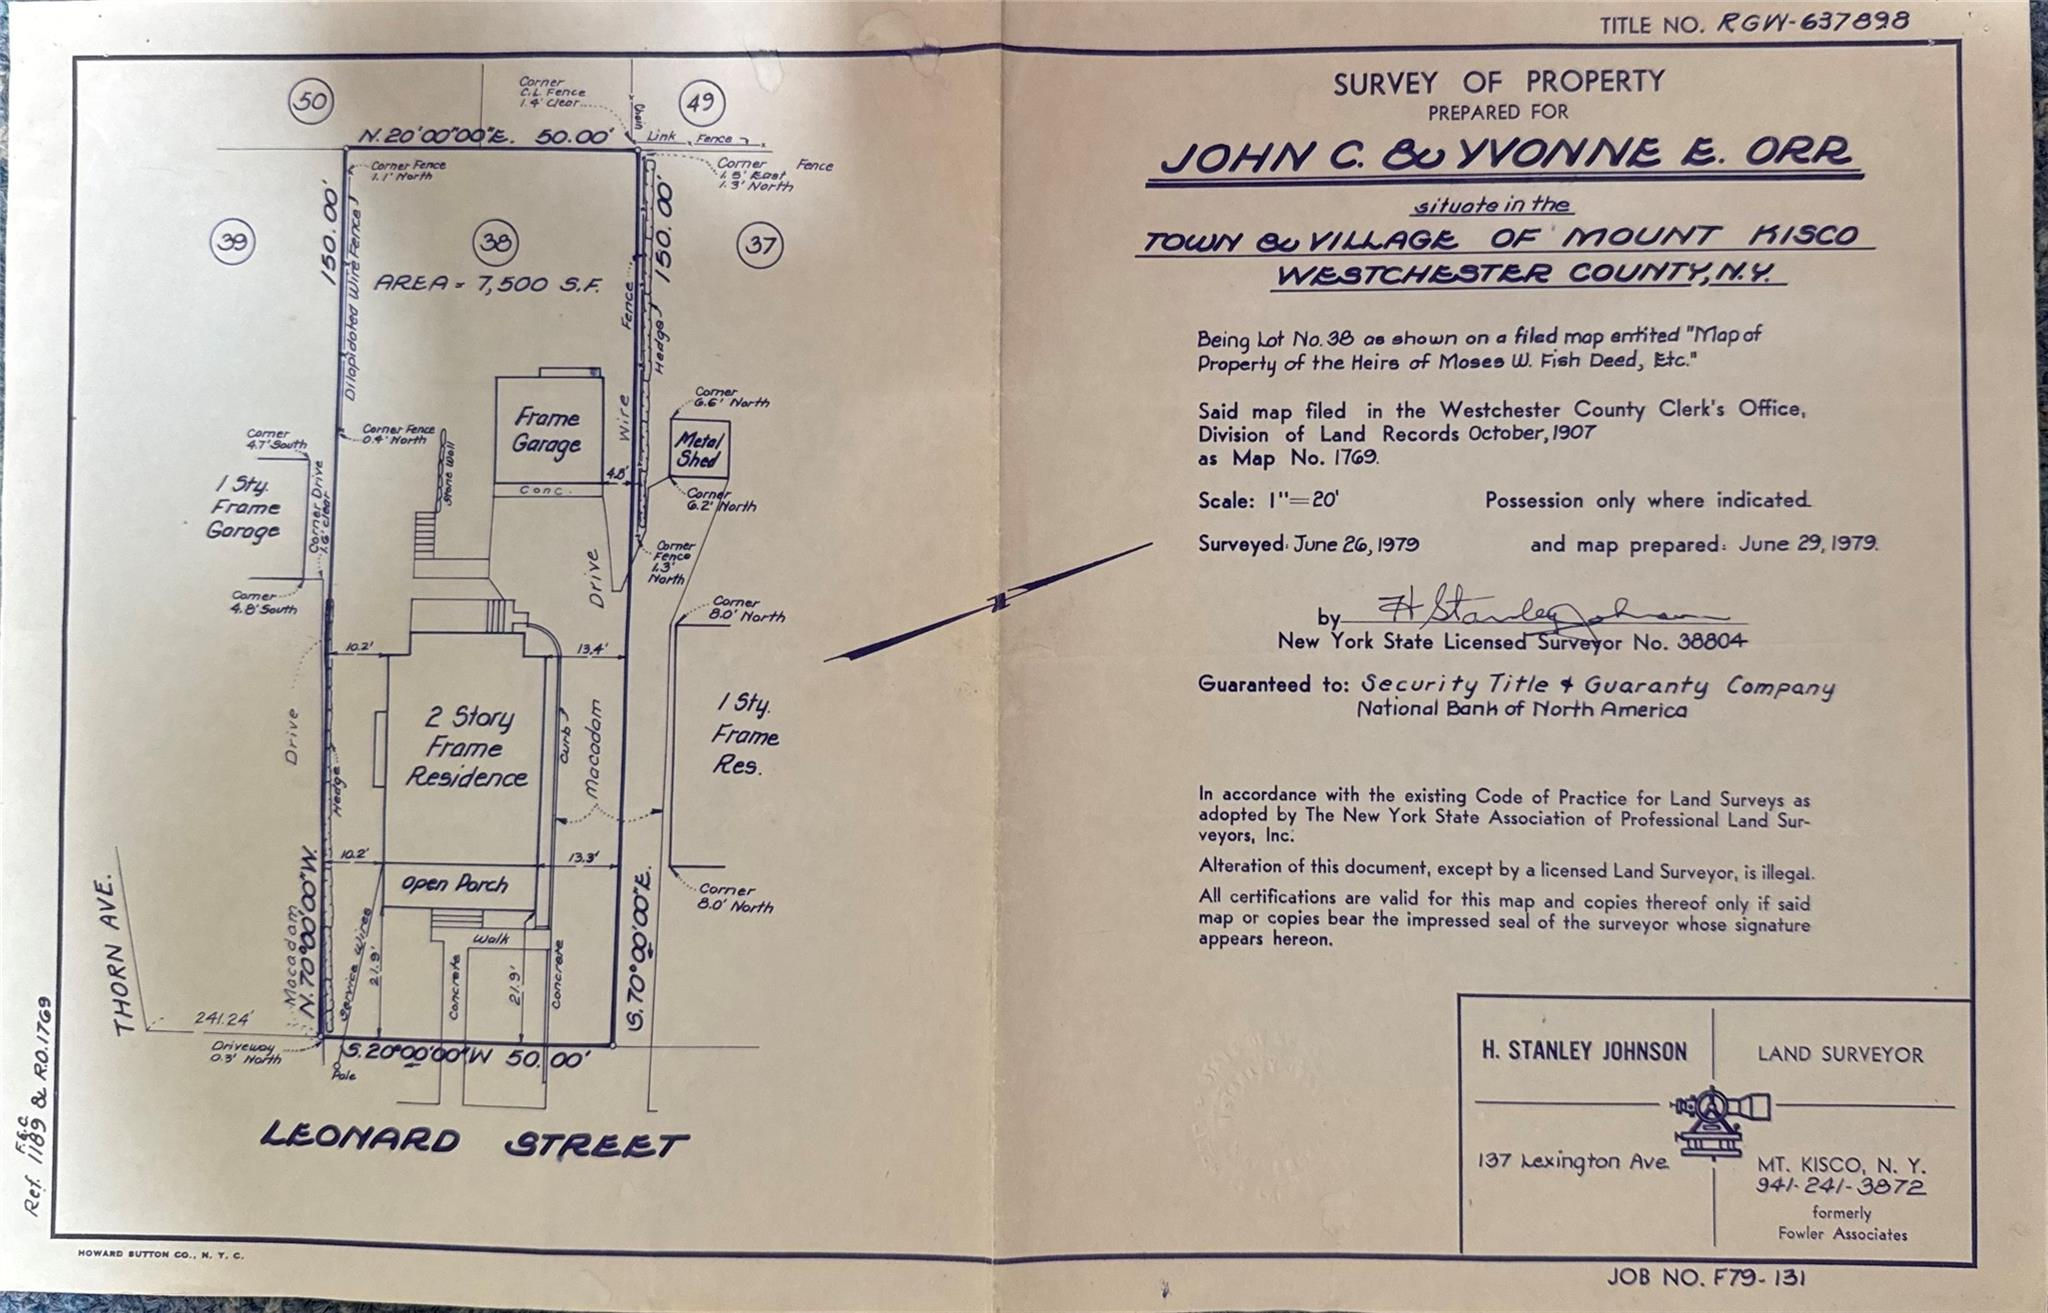 TITLE NO. RGW-637898
SURVEY OF PROPERTY
PREPARED FOR
JOHN C. & YVONNE E. ORR
situate in the
TOWN & VILLAGE OF MOUNT KISCO
WESTCHESTER COUNTY, N.Y.
Being Lot No. 38 as shown on a filed map entitled "Map of
Property of the Heirs of Moses W. Fish Deed, Etc."
Said map filed in the Westchester County Clerk's Office,
Division of Land Records October, 1907
as Map No. 1769.
Scale: 1"=20' Possession only where indicated.
Surveyed: June 26, 1979 and map prepared: June 29, 1979.
by H Stanley Johnson
New York State Licensed Surveyor No. 38804
Guaranteed to: Security Title & Guaranty Company
National Bank of North America
In accordance with the existing Code of Practice for Land Surveys as
adopted by The New York State Association of Professional Land Sur-
veyors, Inc.
Alteration of this document, except by a licensed Land Surveyor, is illegal.
All certifications are valid for this map and copies thereof only if said
map or copies bear the impressed seal of the surveyor whose signature
appears hereon.
H. STANLEY JOHNSON
LAND SURVEYOR
137 Lexington Ave.
MT. KISCO, N. Y.
941-241-3872
formerly
Fowler Associates
JOB NO. F79-131
50
Corner
C.L. Fence
1.4' Clear
49
Chain
Link Fence
N. 20°00'00"E. 50.00'
Corner Fence
1.1' North
Corner Fence
1.5' East
1.3' North
150.00'
150.00'
39
38
37
AREA = 7,500 S.F.
Dilapidated Wire Fence
Wire Fence
Hedge
Frame
Garage
4.8'
Conc.
Corner
6.6' North
Metal
Shed
Corner
6.2' North
Corner Fence
0.4' North
Stone Wall
Corner
4.7' South
1 Sty.
Frame
Garage
Corner Drive
1.6' clear
Corner
4.8' South
Corner
Fence
1.3'
North
Drive
Macadam
Corner
8.0' North
10.2'
13.4'
2 Story
Frame
Residence
Curb
1 Sty.
Frame
Res.
Drive
Macadam
Hedge
10.2'
13.3'
Open Porch
Corner
8.0' North
N. 70°00'00"W.
S. 70°00'00"E.
Service Wires
21.9'
Walk
Concrete
21.9'
Concrete
THORN AVE.
241.24'
Driveway
0.3' North
S. 20°00'00"W 50.00'
Pole
LEONARD STREET
Ref. F.&C. 1189 & R.O. 1769
HOWARD SUTTON CO., N. Y. C.